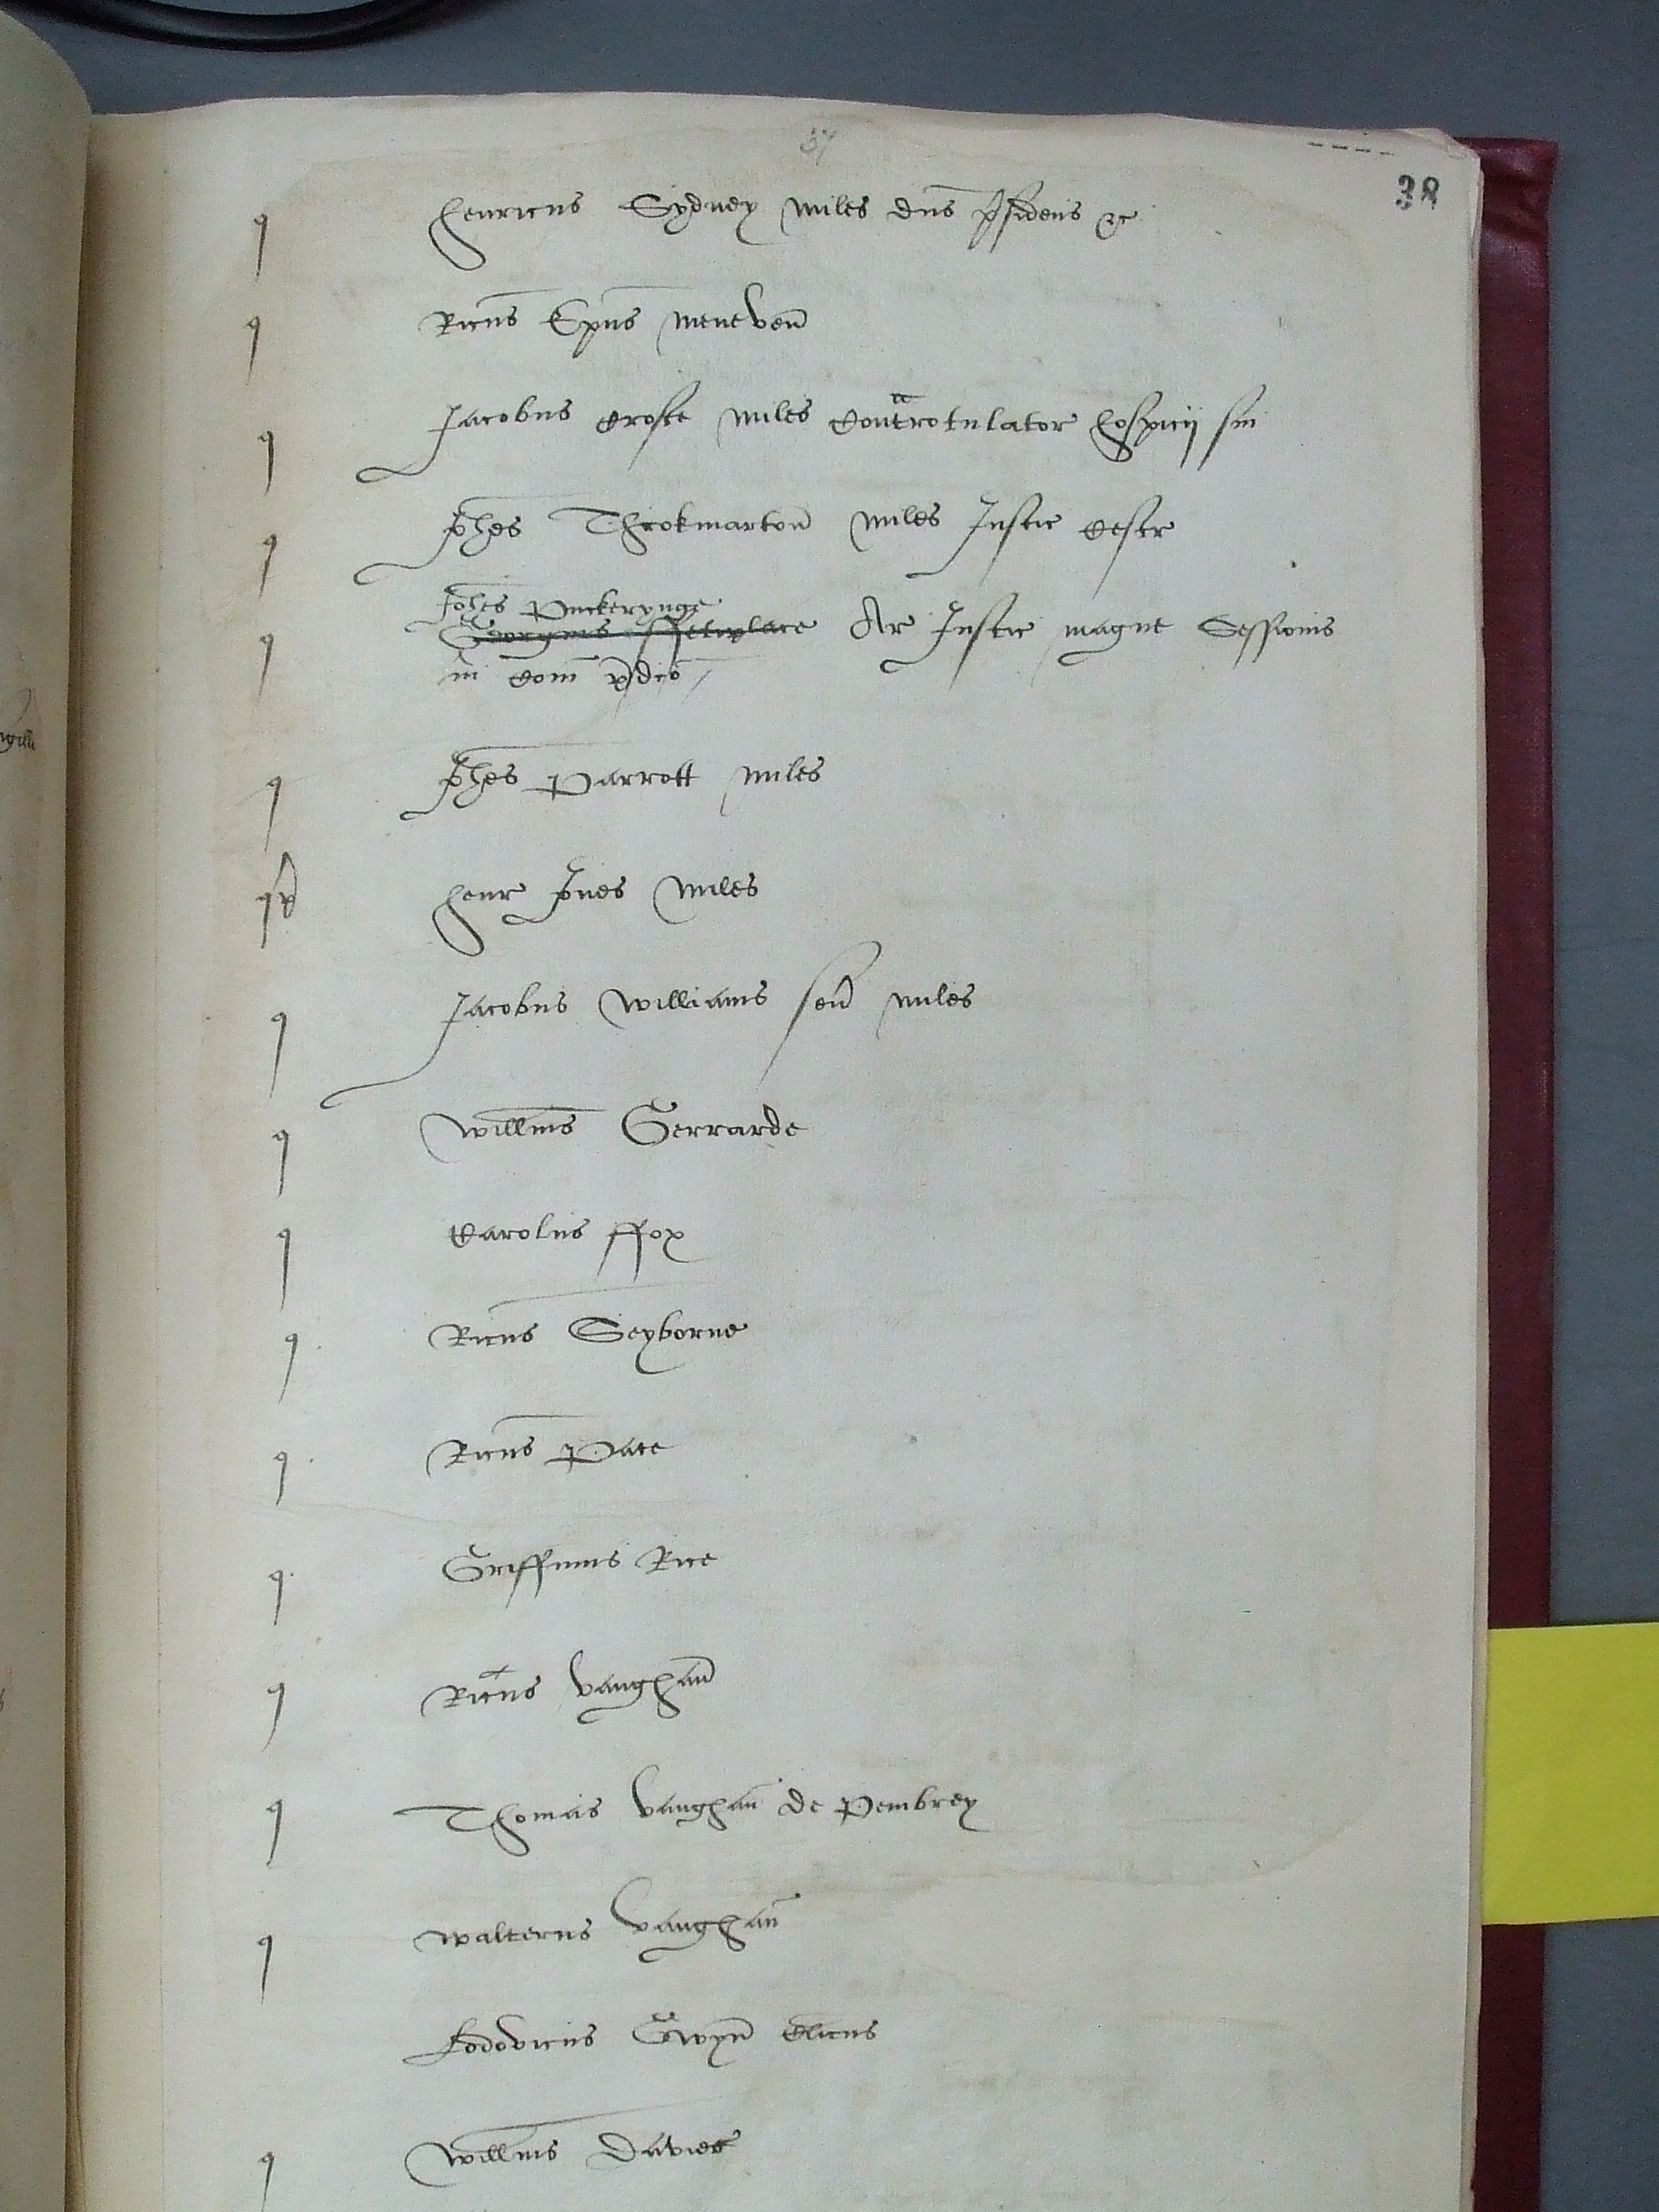 37
38
q henricus Sydney miles dns p̄sidens &c
q Ricus Epus meneven
q Jacobus Crofte miles Contrarotulator hospicij sui
q Johes Throkmarton miles Justic Cestr
Johes Puckerynge
q Georgius ffetiplace Ar Justic magne Sessionis
in Com p̄dco
q Johes Parrott miles
q henr Jones miles
q Jacobus Williams sen miles
q Willms Gerrarde
q Carolus ffox
q Ricus Seyborne
q Ricus Pate
q Griffinus Rice
q Ricus vaughan
q Thomas vaughan de Pembrey
q Walterus vaughan
Lodovicus Gwyn Clicus
q Willms Davies